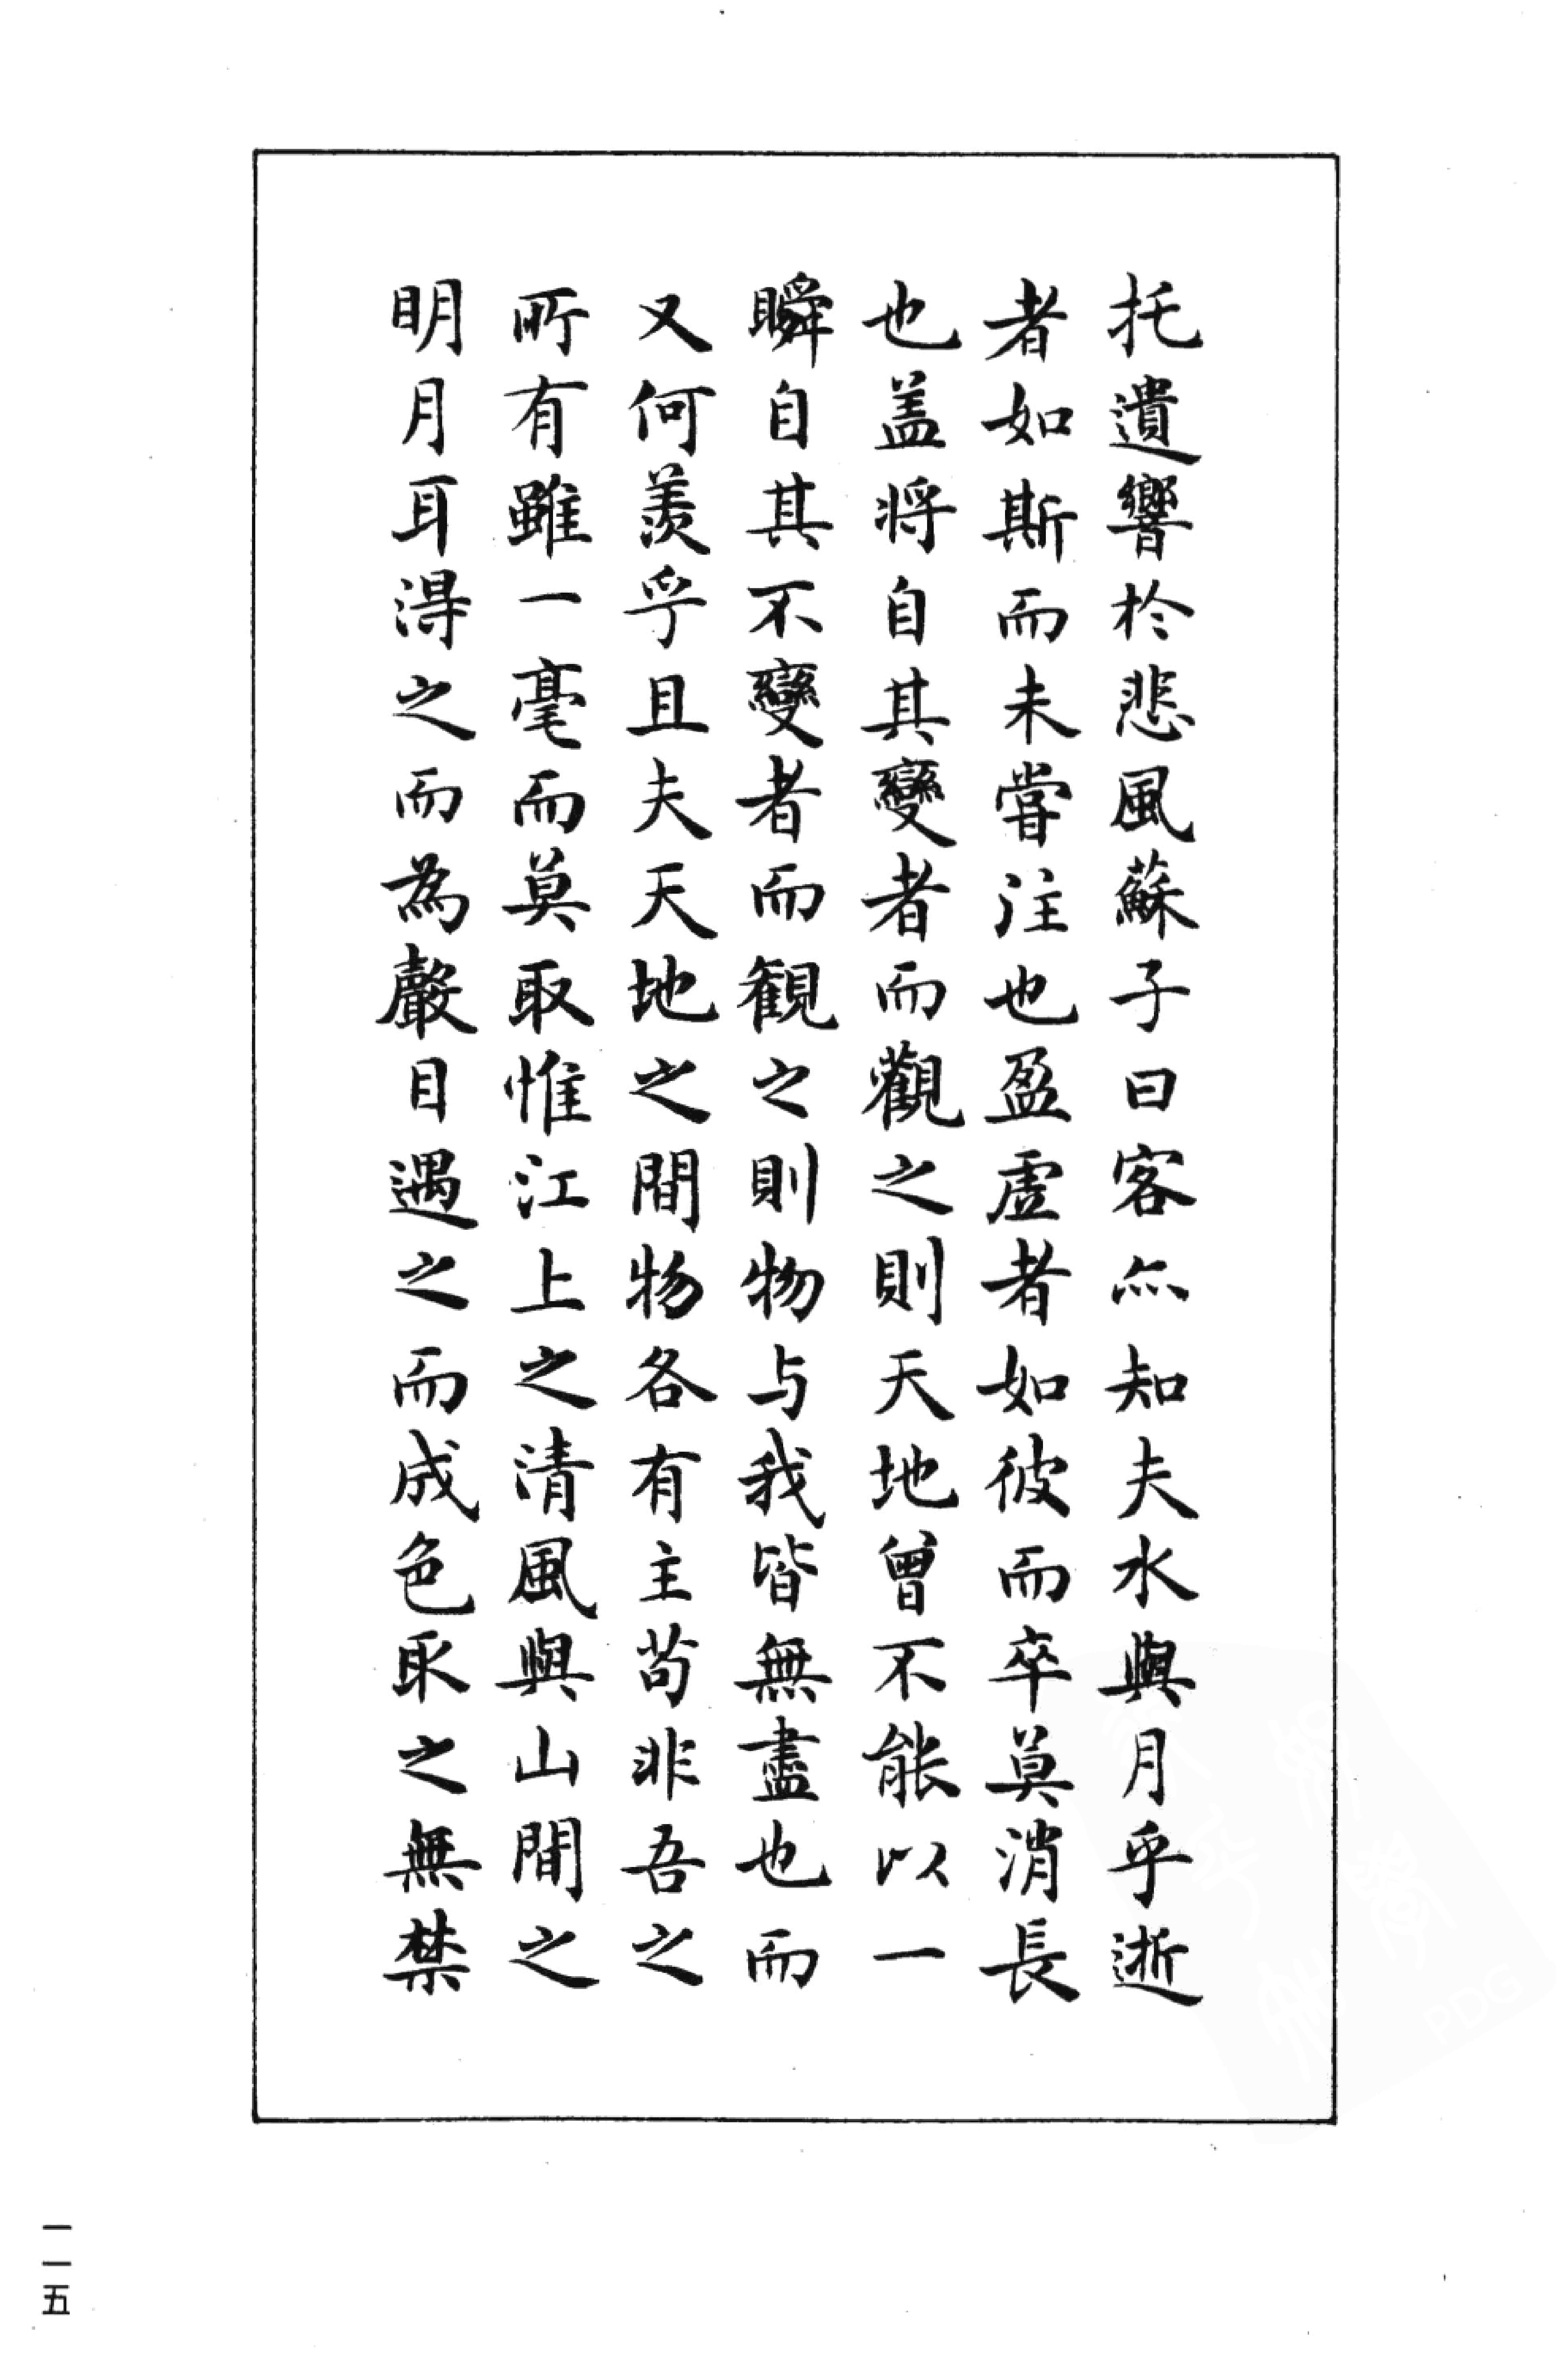 托遺響於悲風蘇子曰客亦知夫水與月乎逝
者如斯而未嘗往也盈虛者如彼而卒莫消長
也盖將自其變者而觀之則天地曾不能以一
瞬自其不變者而觀之則物与我皆無盡也而
又何羨乎且夫天地之間物各有主苟非吾之
所有雖一毫而莫取惟江上之清風與山間之
明月耳得之而為聲目遇之而成色取之無禁
一一五
PDG